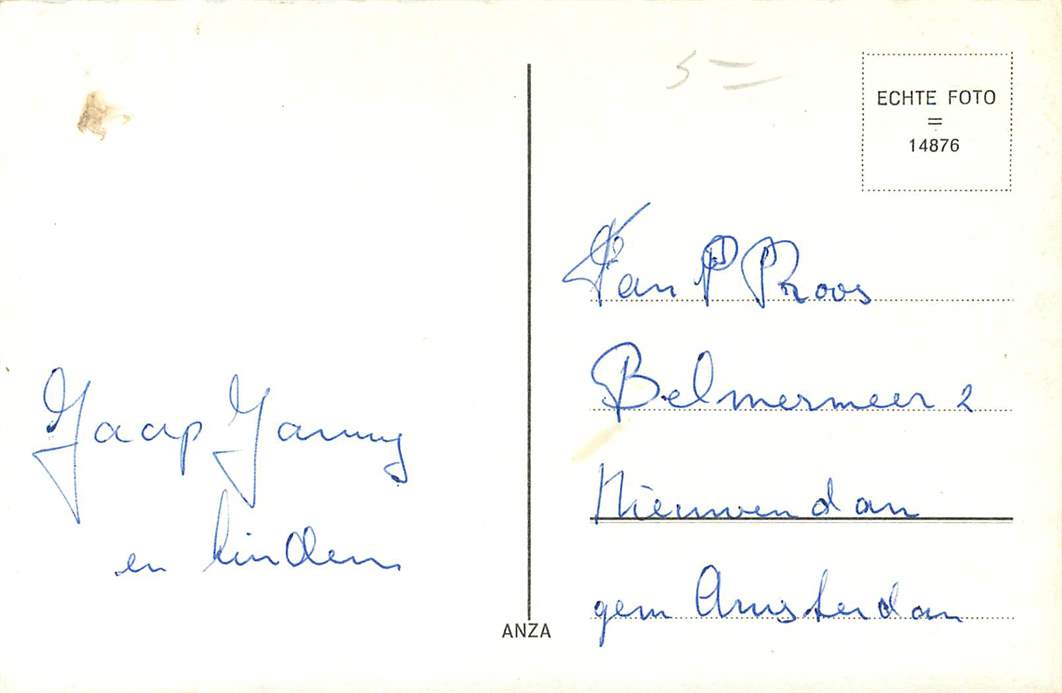 5=
ECHTE FOTO
=
14876
Jaap Janny
en kinderen
Fam P Roos
Belmermeer 2
Nieuwendam
gem Amsterdam
ANZA